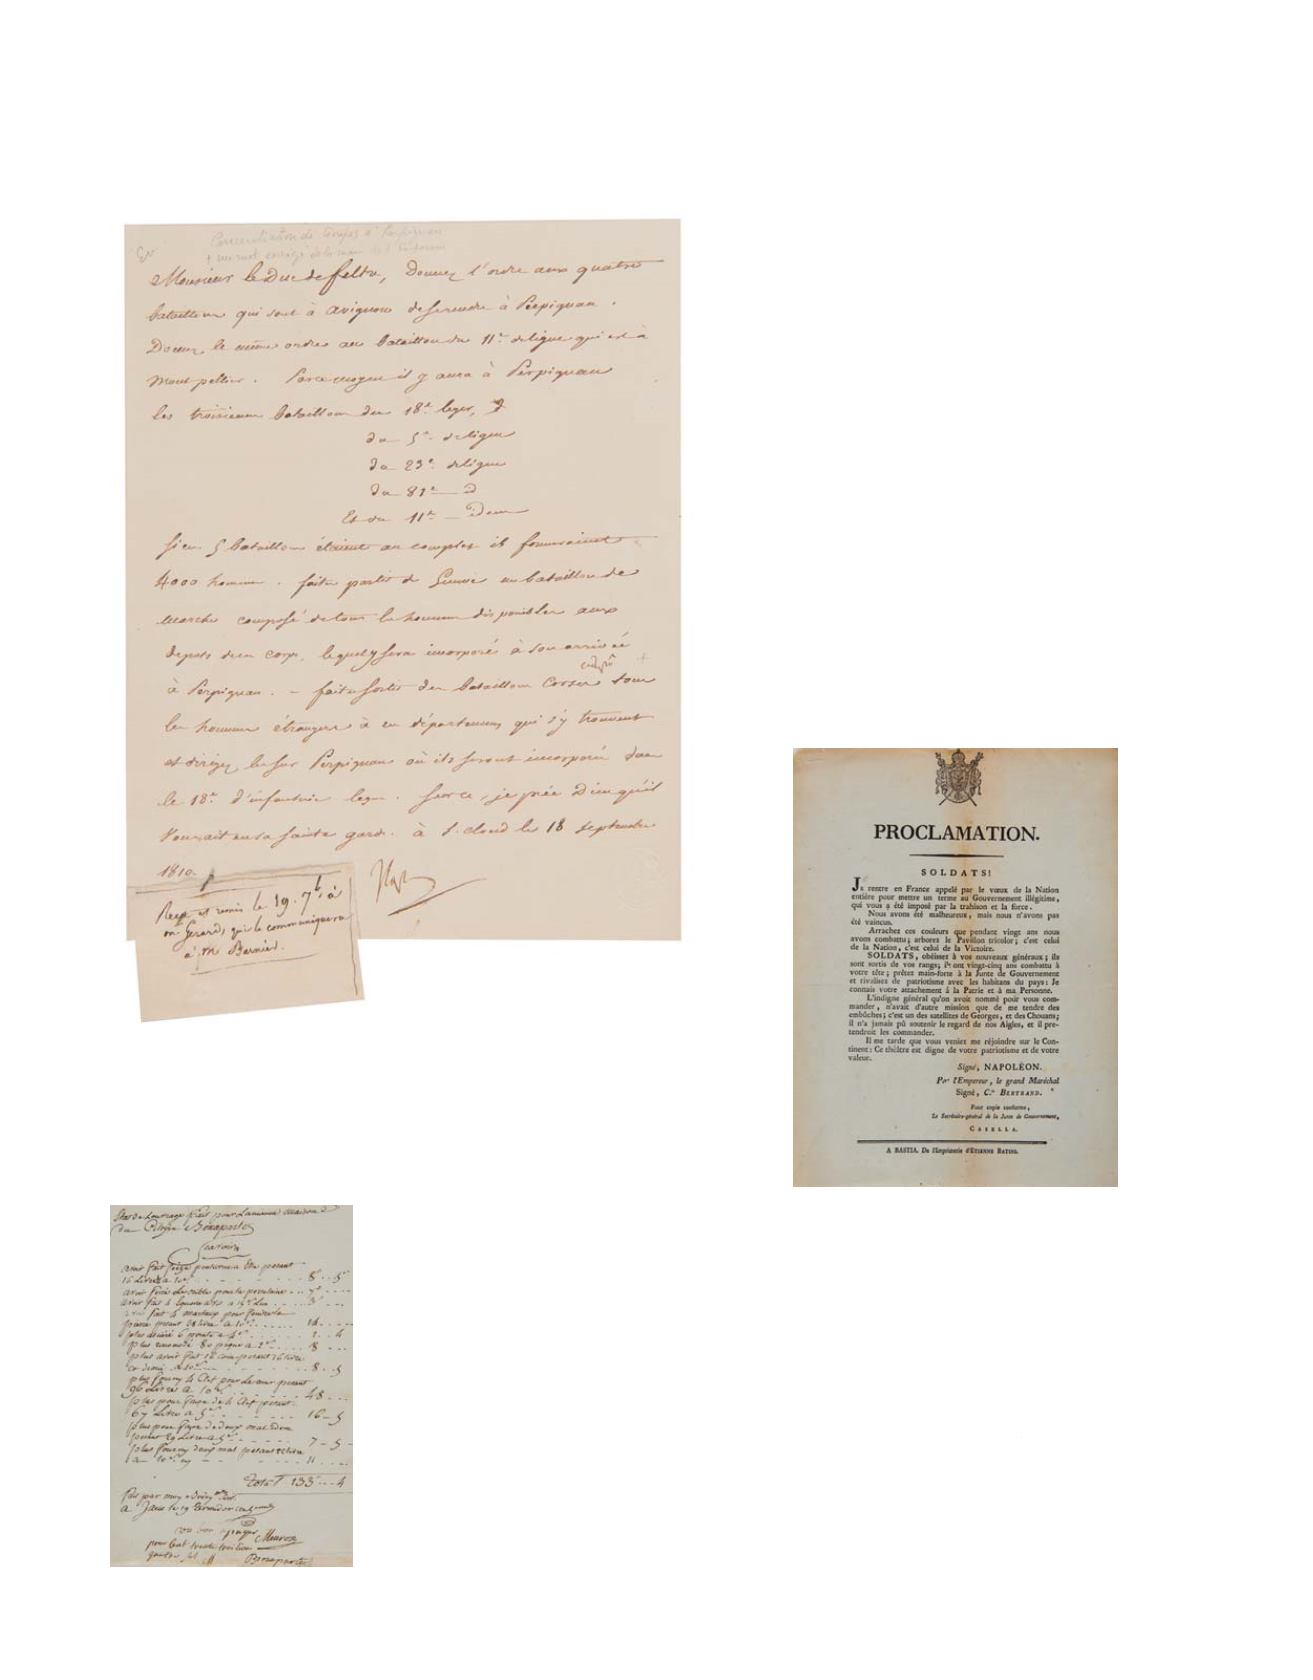 Concentration de troupes à Perpignan
Monsieur le Duc de feltre, Donnez l'ordre aux quatre
bataillons qui sont à avignon de se rendre à Perpignan.
Donnez le même ordre au bataillon du 11e. de ligne qui est à
Montpellier. Par ce moyen il y aura à Perpignan
les troisiemes bataillons du 18e. leger,
du 5e. de ligne
du 23e. de ligne
du 81e. d
Et du 11e. idem
Si ces 5 bataillons étaient au complet ils fourniraient
4000 hommes. faites partir de Genève un bataillon de
marche composé de tous les hommes disponibles aux
depots de ces corps, lequel sera incorporé à son arrivée
à Perpignan. - faites sortir des bataillons corses tous
les hommes étrangers à ces départemens qui s'y trouvent
et dirigez les sur Perpignan où ils seront incorporés dans
le 18e. d'infanterie legere. Sur ce, je prie Dieu qu'il
vous ait en sa sainte garde. à St. cloud le 18 septembre
1810.
Nap
Reçu et remis le 19. 7b. à
m Gerard, qui le communiquera
à M Barnier.
PROCLAMATION.
SOLDATS!
Je rentre en France appelé par le vœux de la Nation
entière pour mettre un terme au Gouvernement illégitime,
qui vous a été imposé par la trahison et la force.
Nous avons été malheureux, mais nous n'avons pas
été vaincus.
Arrachez ces couleurs que pendant vingt ans nous
avons combattu; arborez le Pavillon tricolor; c'est celui
de la Nation, c'est celui de la Victoire.
SOLDATS, obéissez à vos nouveaux généraux; ils
sont sortis de vos rangs; ils ont vingt-cinq ans combattu à
votre tête; prêtez main-forte à la Junte de Gouvernement
et rivalisez de patriotisme avec les habitans du pays: Je
connais votre attachement á la Patrie et à ma Personne.
L'indigne général qu'on avoit nommé pour vous com-
mander, n'avait d'autre mission que de me tendre des
embûches; c'est un des satellites de Georges, et des Chouans;
il n'a jamais pû soutenir le regard de nos Aigles, et il pre-
tendroit les commander.
Il me tarde que vous veniez me réjoindre sur le Con-
tinent: Ce théâtre est digne de votre patriotisme et de votre
valeur.
Signé, NAPOLÉON.
Par l'Empereur, le grand Maréchal
Signé, C.te BERTRAND.
Pour copie conforme,
Le Secrétaire-général de la Junte de Gouvernement,
CASELLA.
A BASTIA. De l'Imprimerie d'ETIENNE BATINI.
Etat de Louvrage fait pour Lancienne maison
du Citoyen Bonaparte
Scavoir
avoir fait seize
16 Livres a 10s 8 - 5
avoir fait 4
avoir fait 4 marteaux pour
pierre pesant 28 livre a 10s 14
plus 6 pointe a 4s 1 - 4
plus 80 a 2s 8
plus avoir fait
et demie a 10s 8 - 5
plus fourny 4 Clef pour Le mur pesant
96 Livres a 10s 48
plus pour façon de 4 Clef pesant
67 Livre a 5s 16 - 5
plus pour façon de deux
pesant 29 Livre a 5s 7 - 5
plus fourny deux pesant 22 livre
a 10s 11
Total 133 - 4
fait par moy
a le 19
vu bon a payer
pour Cent trente trois livre
quatre sol
Bonaparte